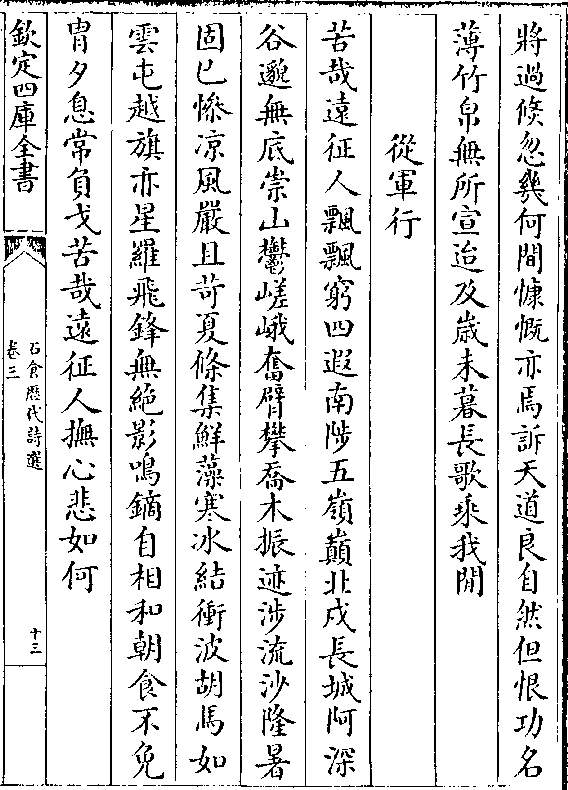 將過倐忽幾何間慷慨亦焉訴天道良自然但恨功名
薄竹帛無所宣迨及嵗未暮長歌乘我閒
從軍行
苦哉遠征人飄飄窮四遐南陟五嶺巔北戍長城阿深
谷邈無底崇山鬱嵯峨奮臂攀喬木振迹涉流沙隆暑
固已慘凉風嚴且苛夏條集鮮藻寒冰結衝波胡馬如
雲屯越旗亦星羅飛鋒無絕影鳴鏑自相和朝食不免
胄夕息常負戈苦哉遠征人撫心悲如何
欽定四庫全書
石倉歷代詩選
卷三
十三